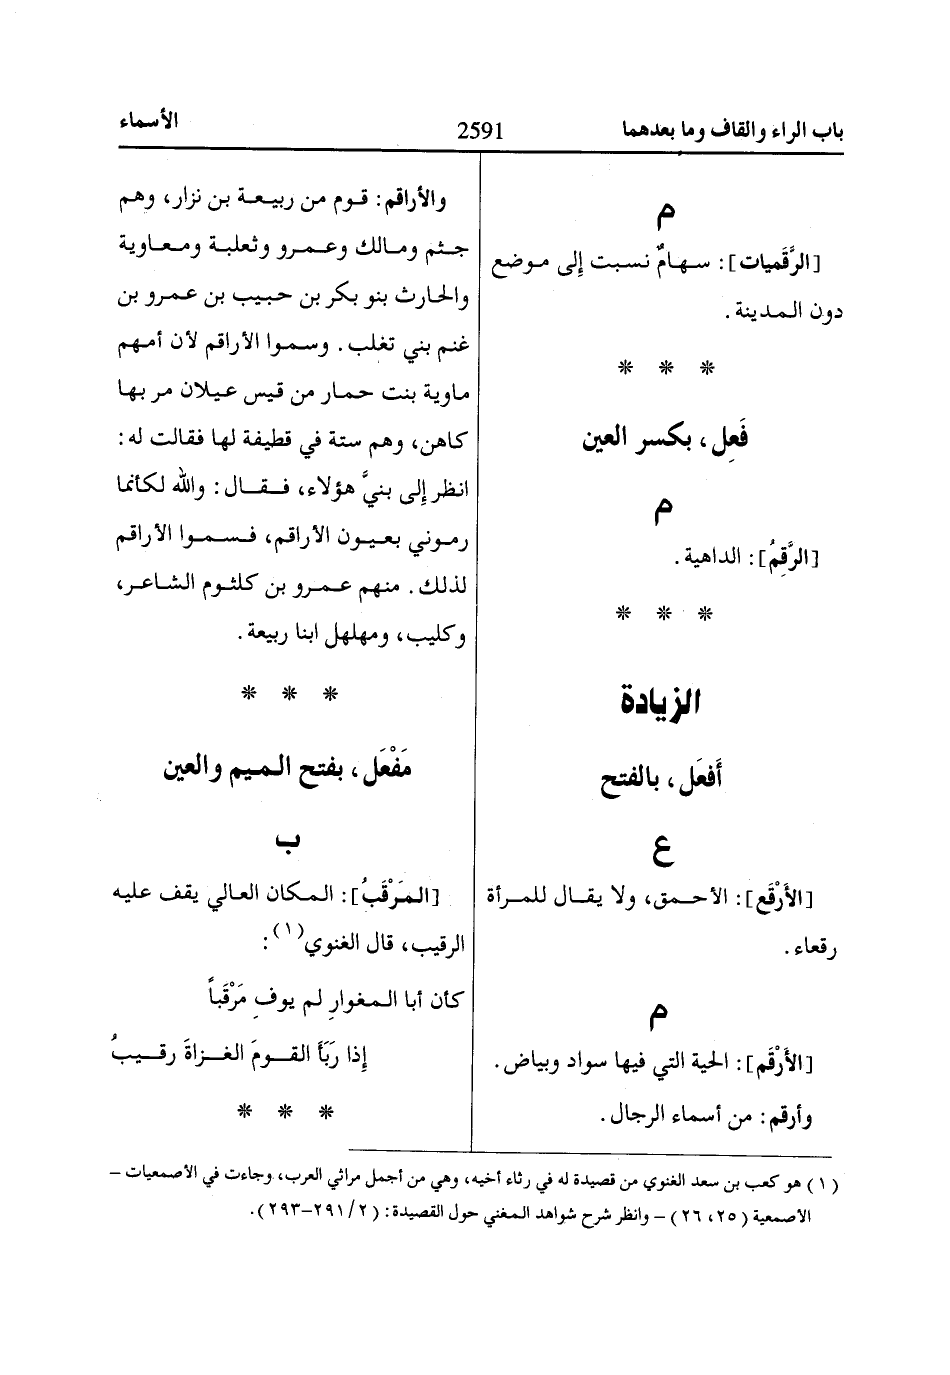 باب الراء والقاف وما بعدهما
2591
الأسماء
م
[الرَّقَميات]: سـهـامٌ نسـبـت إلى مـوضـع
دون الـمـديـنة.
* * *
فَعِل، بكسر العين
م
[الرَّقِمُ]: الداهية.
* * *
الزيادة
أَفعَل، بالفتح
ع
[الأَرْقَع]: الأحـمـق، ولا يقـال للمـرأة
رقعاء.
م
[الأَرْقَم]: الحية التي فيها سواد وبياض.
وأرقم: من أسماء الرجال.
والأراقم: قـوم من ربيـعـة بن نزار، وهم
جـثـم ومـالك وعـمـرو وثعلبـة ومـعـاوية
والحارث بنو بكر بن حبيب بن عمرو بن
غنم بني تغلب. وسموا الأراقم لأن أمـهم
مـاوية بنت حمـار من قيس عيلان مر بها
كاهن، وهم ستة في قطيفة لها فقالت له:
انظر إلى بنيَّ هؤلاء، فـقـال: والله لكأنما
رمـوني بعـيـون الأراقم، فـسـمـوا الأراقم
لذلك. منهم عـمرو بن كلثـوم الشاعـر،
وكليب، ومهلهل ابنا ربيعة.
* * *
مَفْعَل، بفتح الـميم والعين
ب
[الـمَرْقَبُ]: الـمكان العالي يقف عليه
الرقيب، قال الغنوي(١):
كأن أبا الـمغوارِ لم يوفِ مَرْقَباً
إذا رَبَأَ القـومَ الغـزاةَ رقـيـبُ
* * *
(١) هو كعب بن سعد الغنوي من قصيدة له في رثاء أخيه، وهي من أجمل مراثي العرب، وجاءت في الأصمعيات –
الأصمعية (٢٥، ٢٦) – وانظر شرح شواهد الـمغني حول القصيدة: (٢/ ٢٩١–٢٩٣).